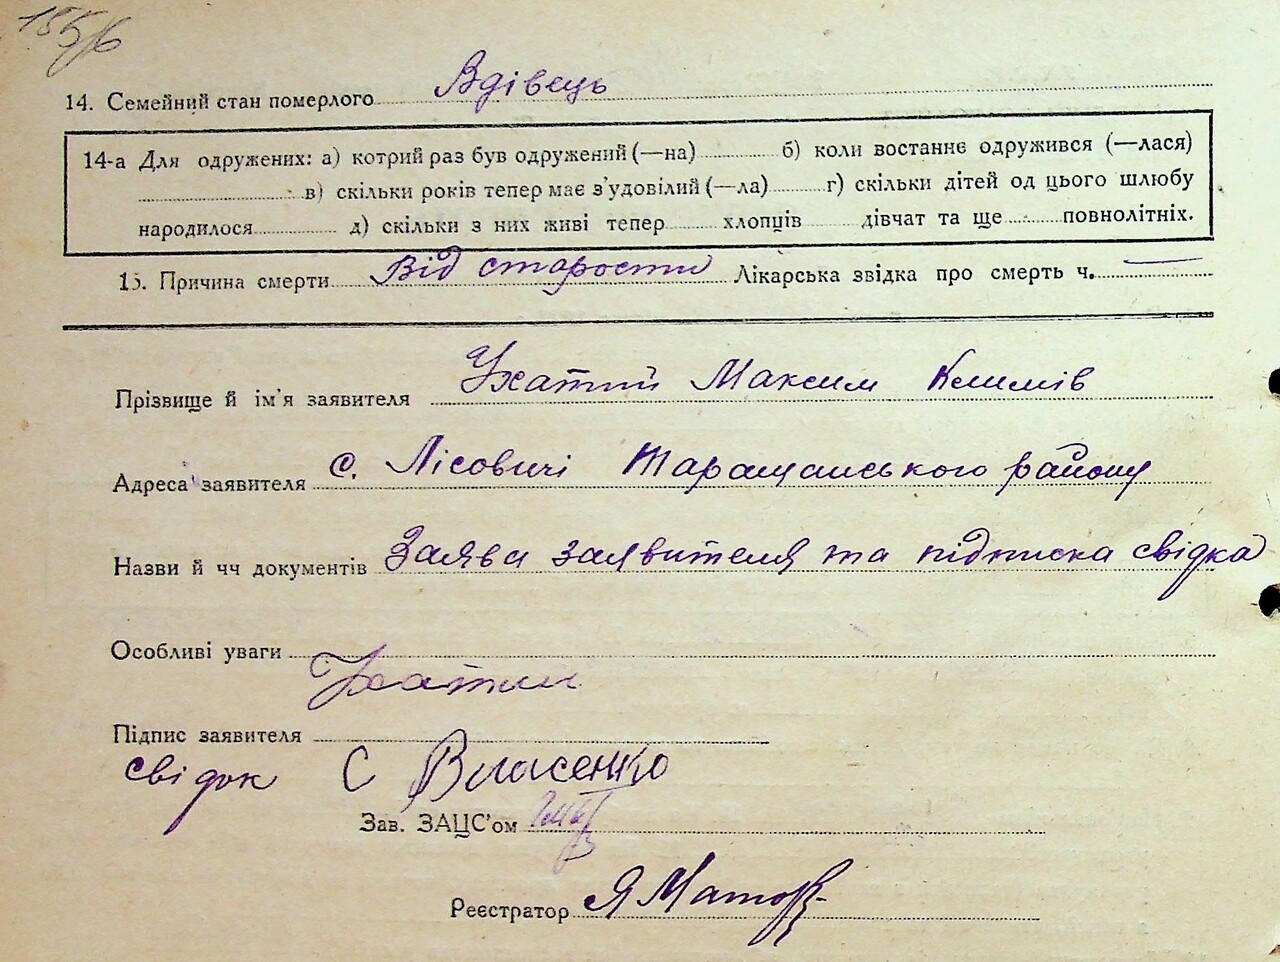 155/6
14. Семейний стан померлого Вдівець
14-а Для одружених: а) котрий раз був одружений (—на) б) коли востаннє одружився (—лася)
в) скільки років тепер має з’удовілий (—ла) г) скільки дітей од цього шлюбу
народилося д) скільки з них живі тепер хлопців дівчат та ще повнолітніх.
15. Причина смерти Від старости Лікарська звідка про смерть ч. —
Прізвище й ім’я заявителя Ухатий Максим Климів
Адреса заявителя с. Лісовичі Таращанського району
Назви й чч документів Заява заявителя та підписка свідка
Особливі уваги
Ухатий
Підпис заявителя
свідок С Власенко
Зав. ЗАЦС’ом
Реєстратор Я